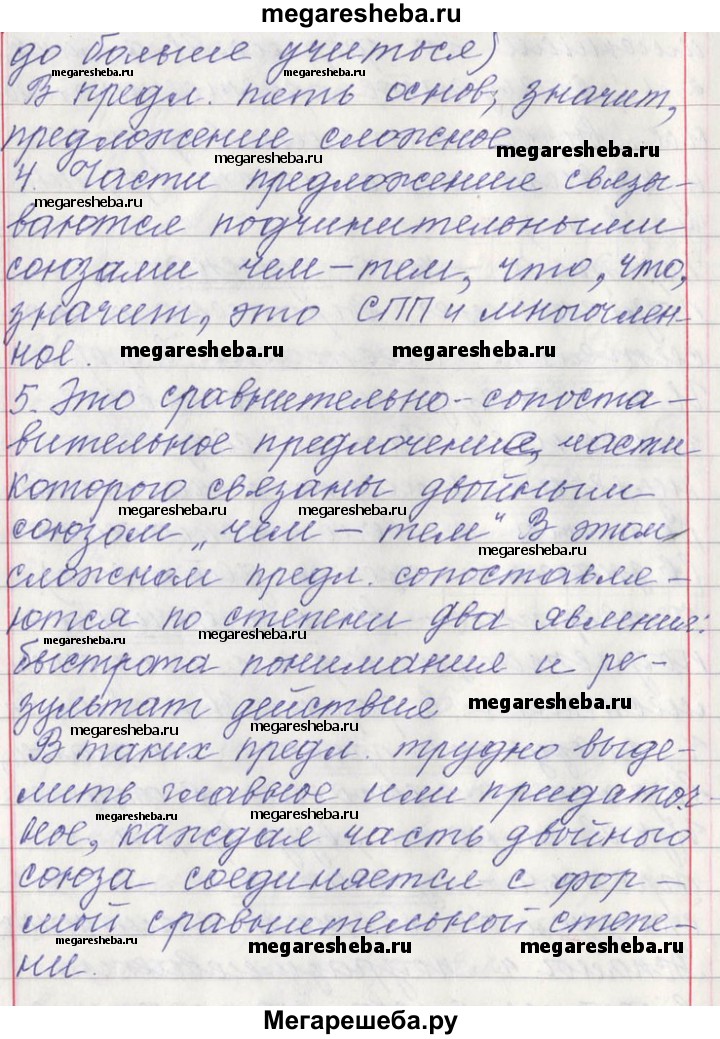 megaresheba.ru
до больше учиться)
megaresheba.ru megaresheba.ru
В предл. пять основ, значит,
предложение сложное
megaresheba.ru megaresheba.ru
4. Части предложение связы-
megaresheba.ru
ваются подчинительными
союзами чем-тем, что, что,
значит, это СПП и многочлен-
ное.
megaresheba.ru megaresheba.ru
5. Это сравнительно-сопоста-
вительное предлочение, части
которого связаны двойным
megaresheba.ru megaresheba.ru
союзом „чем – тем“ В этом
megaresheba.ru
сложном предл. сопоставля-
megaresheba.ru
ются по степени два явления:
megaresheba.ru megaresheba.ru
быстрота понимания и ре-
зультат действия
megaresheba.ru
megaresheba.ru
В таких предл. трудно выде-
лить главное или придаточ-
megaresheba.ru megaresheba.ru
ное, каждая часть двойного
союза соединяется с фор-
мой сравнительной степе-
megaresheba.ru megaresheba.ru megaresheba.ru
ни.
Мегарешеба.ру